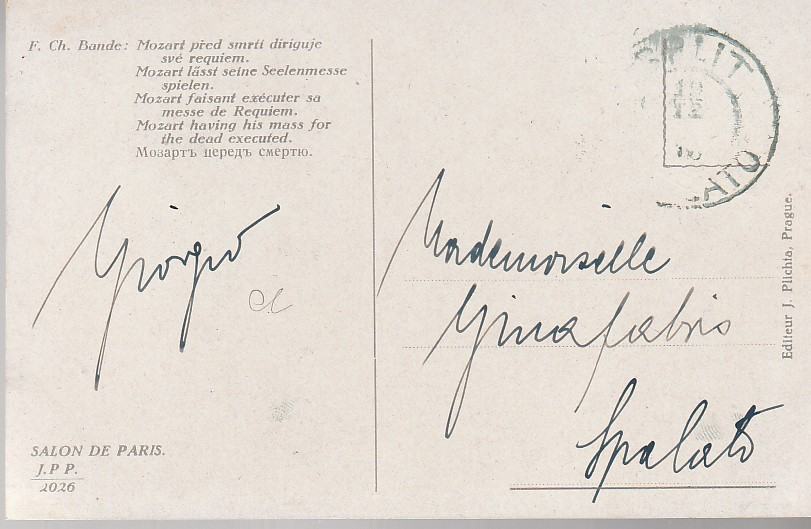 F. Ch. Bande: Mozart před smrtí diriguje
své requiem.
Mozart lässt seine Seelenmesse
spielen.
Mozart faisant exécuter sa
messe de Requiem.
Mozart having his mass for
the dead executed.
Моzартъ передъ смертю.
Giorgio
SPLIT
Mademoiselle
Gina Fabris
Spalato
Editeur J. Plichta, Prague.
SALON DE PARIS.
J.P P.
2026